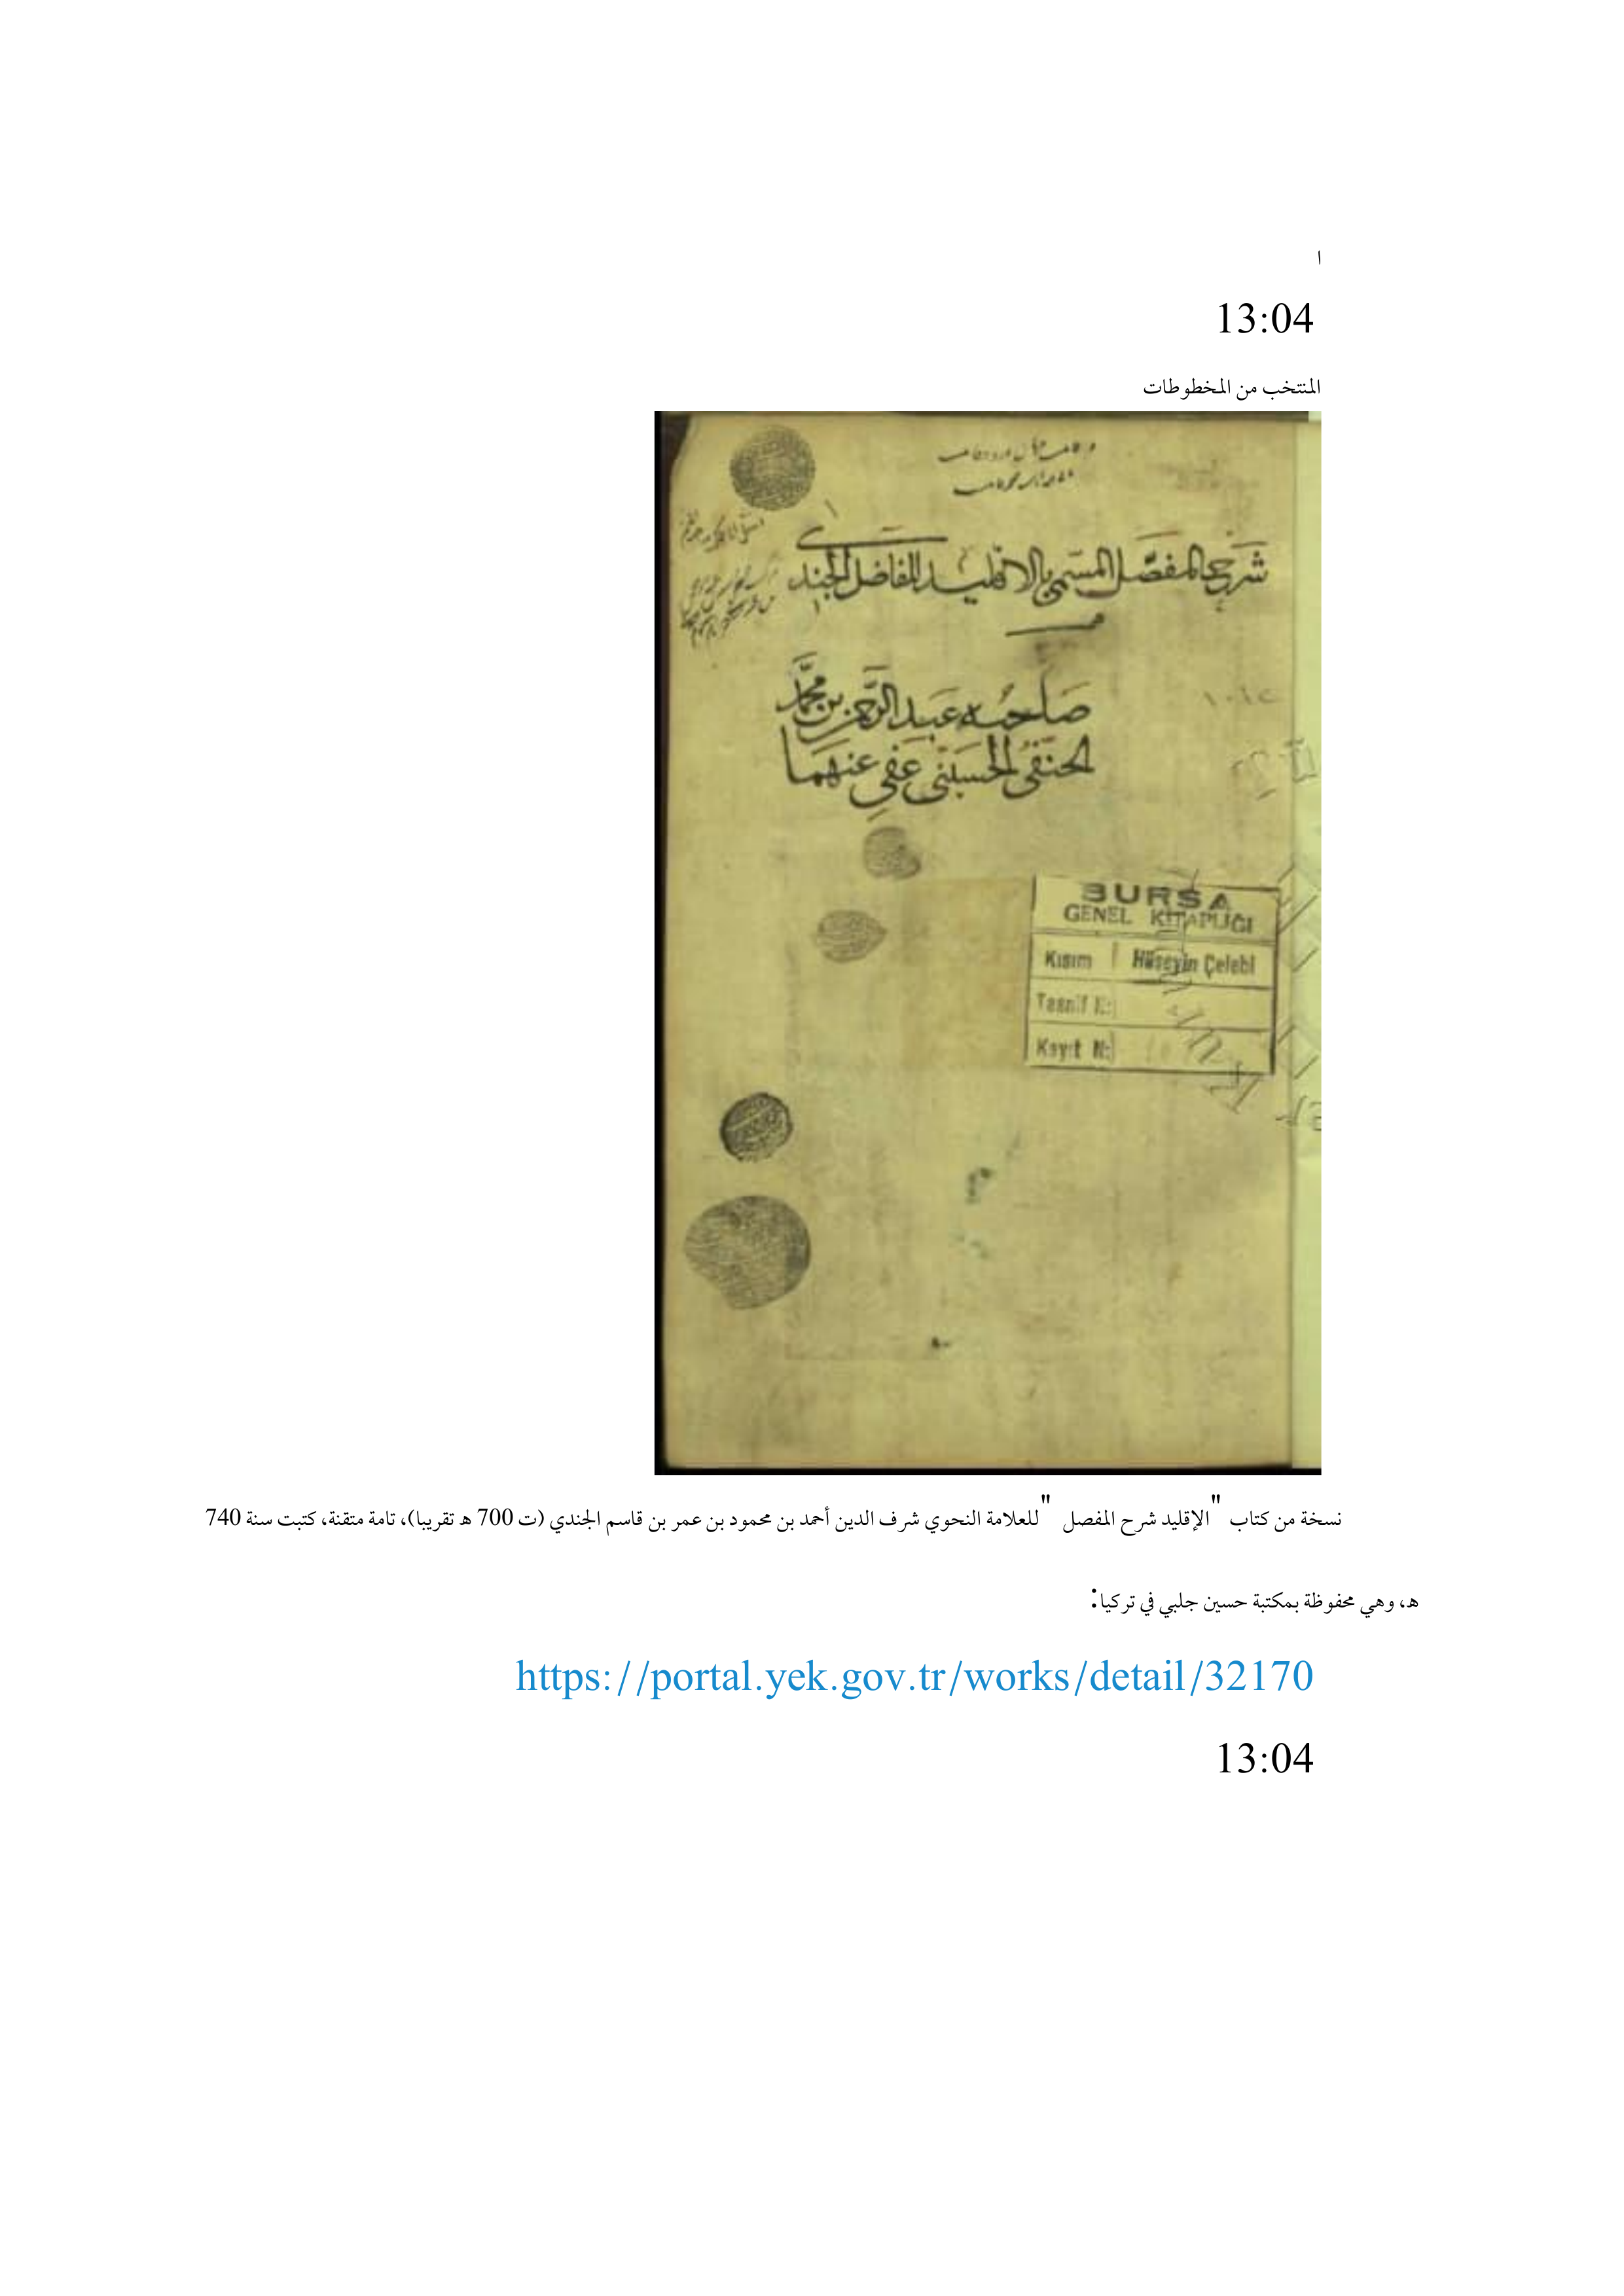 ا
13:04
المنتخب من المخطوطات
شرح المفصل المسمى بالاقليد للفاضل الجندى
صاحبه عبد الرحمن بن محمد
الحنفى الحسينى عفى عنهما
BURSA
GENEL KİTAPLIĞI
Kısım Hüseyin Çelebi
Tasnif N:
Kayıt N:
نسخة من كتاب "الإقليد شرح المفصل" للعلامة النحوي شرف الدين أحمد بن محمود بن عمر بن قاسم الجندي (ت 700 ه تقريبا)، تامة متقنة، كتبت سنة 740
ه، وهي محفوظة بمكتبة حسين جلبي في تركيا:
https://portal.yek.gov.tr/works/detail/32170
13:04